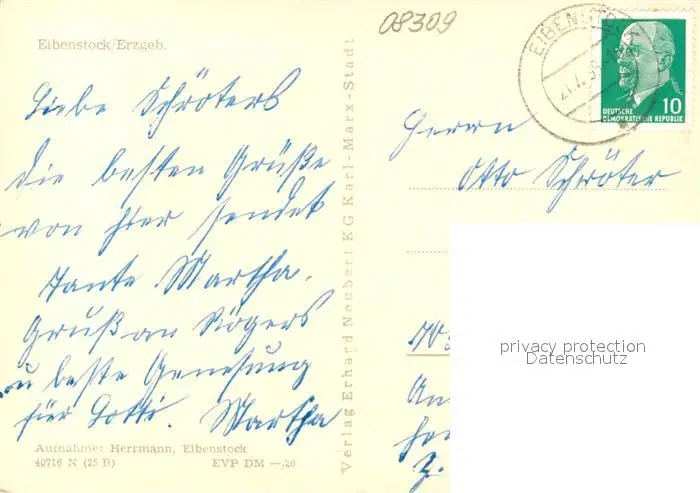 Eibenstock/Erzgeb.
Liebe Schröters
die besten Grüße
von hier sendet
Tante Martha.
Gruß an Rögers
u beste Genesung
für Lotti. Martha
Aufnahme: Herrmann, Eibenstock
40716 N (25 B) EVP DM —,20
Verlag Erhard Neubert KG Karl-Marx-Stadt
08309
EIBENSTOCK
DEUTSCHE 10
DEMOKRATISCHE REPUBLIK
Herrn
Otto Schröter
privacy protection
Datenschutz